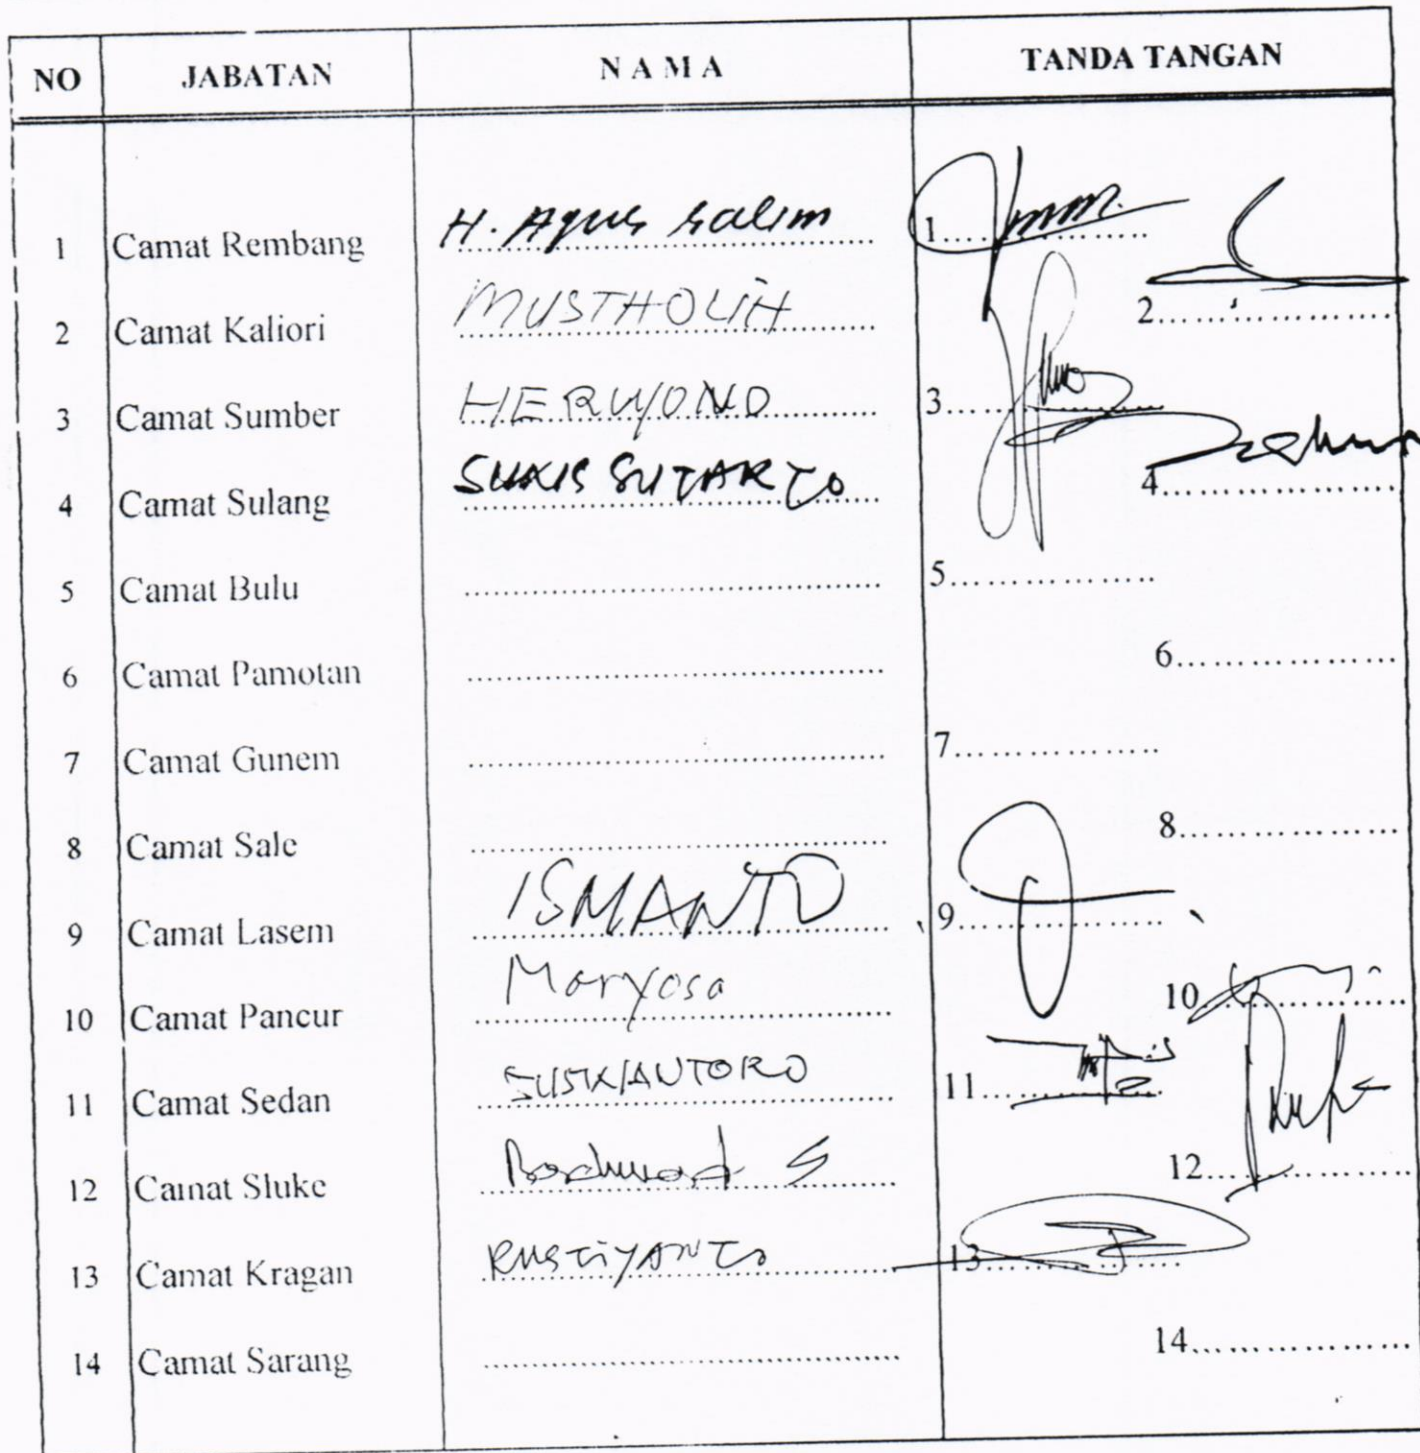 NO JABATAN N A M A TANDA TANGAN
1 Camat Rembang H. Agus Salim 1
2 Camat Kaliori MUSTHOLIH 2
3 Camat Sumber HERWYONO 3
4 Camat Sulang SUKIS SUTARTO 4
5 Camat Bulu 5
6 Camat Pamotan 6
7 Camat Gunem 7
8 Camat Sale 8
9 Camat Lasem ISMANTO 9
10 Camat Pancur Maryosa 10
11 Camat Sedan SUSKIANTORO 11
12 Camat Sluke S 12
13 Camat Kragan RUSTIYANTO 13
14 Camat Sarang 14